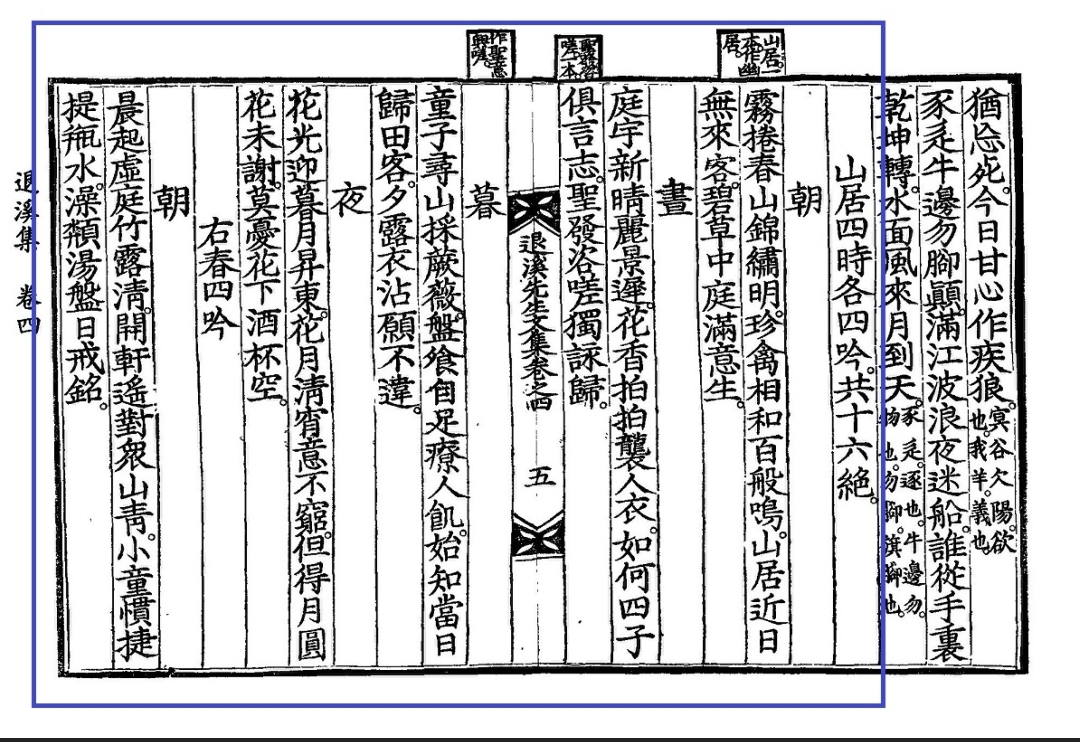 猶忘死。今日甘心作疾狼。冥谷欠陽。欲也。我羊。義也。
豕辵牛邊勿腳顚。滿江波浪夜迷船。誰從手裏
乾坤轉。水面風來月到天。豕辵。逐也。牛邊勿。物也。勿腳。濱腳也。
山居四時各四吟。共十六絶。
朝
山居一本作幽居。
霧捲春山錦繡明。珍禽相和百般鳴。山居近日
無來客。碧草中庭滿意生。
晝
庭宇新晴麗景遲。花香拍拍襲人衣。如何四子
聖發咨嗟一本
俱言志。聖發咨嗟獨詠歸。
退溪先生文集卷之四 五
作聖意興嗟。
暮
童子尋山採蕨薇。盤飧自足療人飢。始知當日
歸田客。夕露衣沾願不違。
夜
花光迎暮月昇東。花月淸宵意不窮。但得月圓
花未謝。莫憂花下酒杯空。
右春四吟
朝
晨起虛庭竹露淸。開軒遙對衆山靑。小童慣捷
提甁水。澡頮湯盤日戒銘。
退溪集 卷四